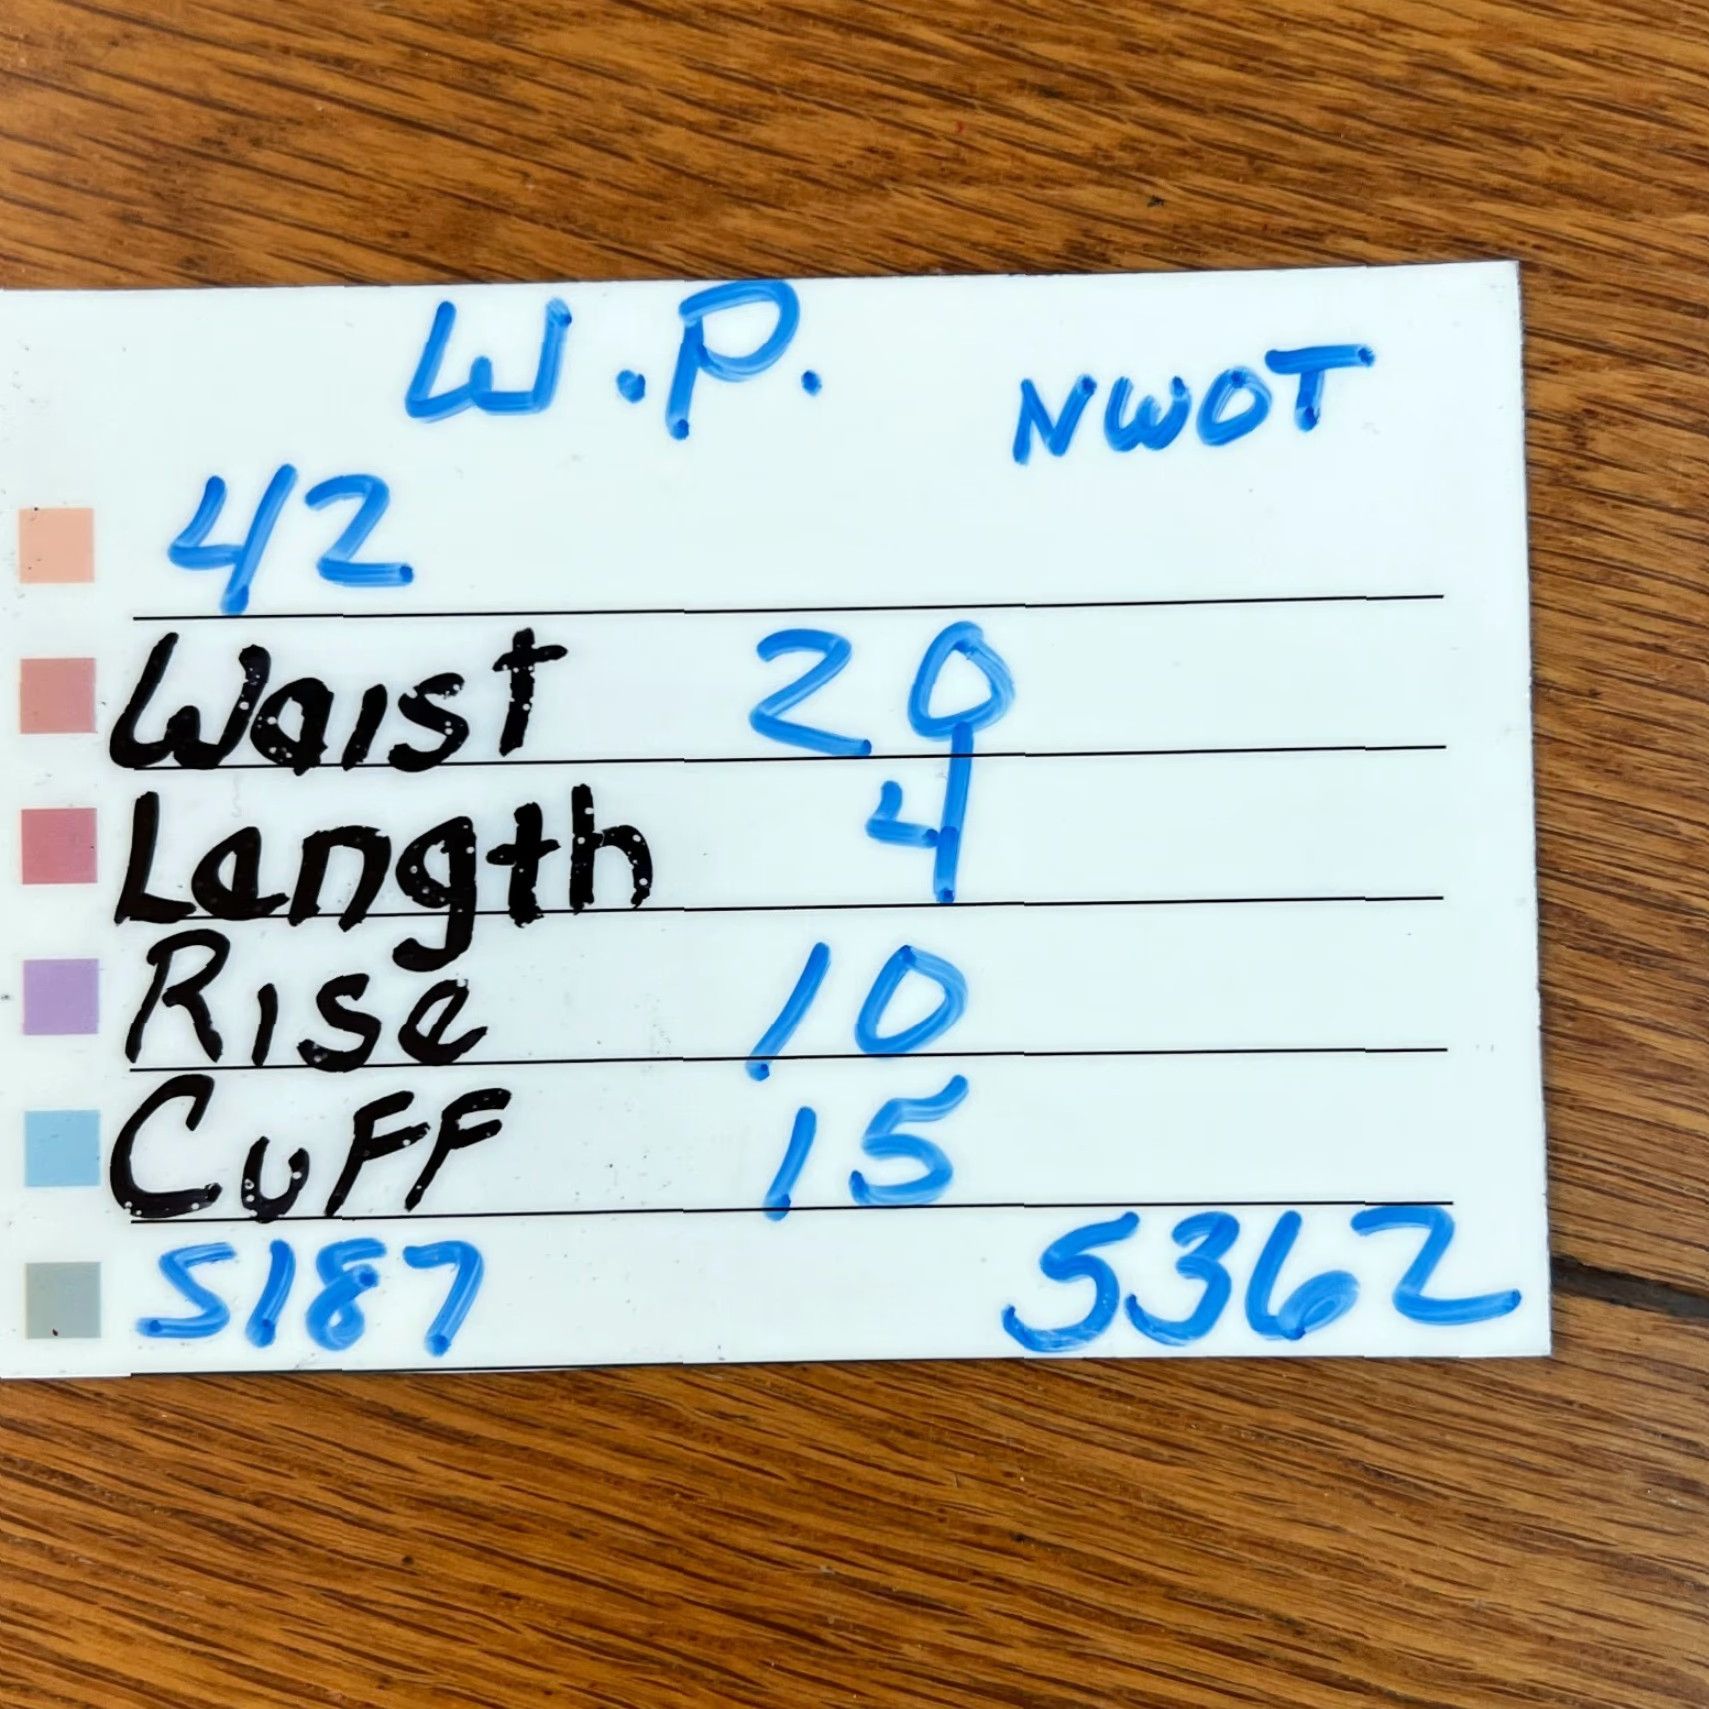 W.P. NWOT
42
Waist 20
Length 4
Rise 10
Cuff 15
5187 5362